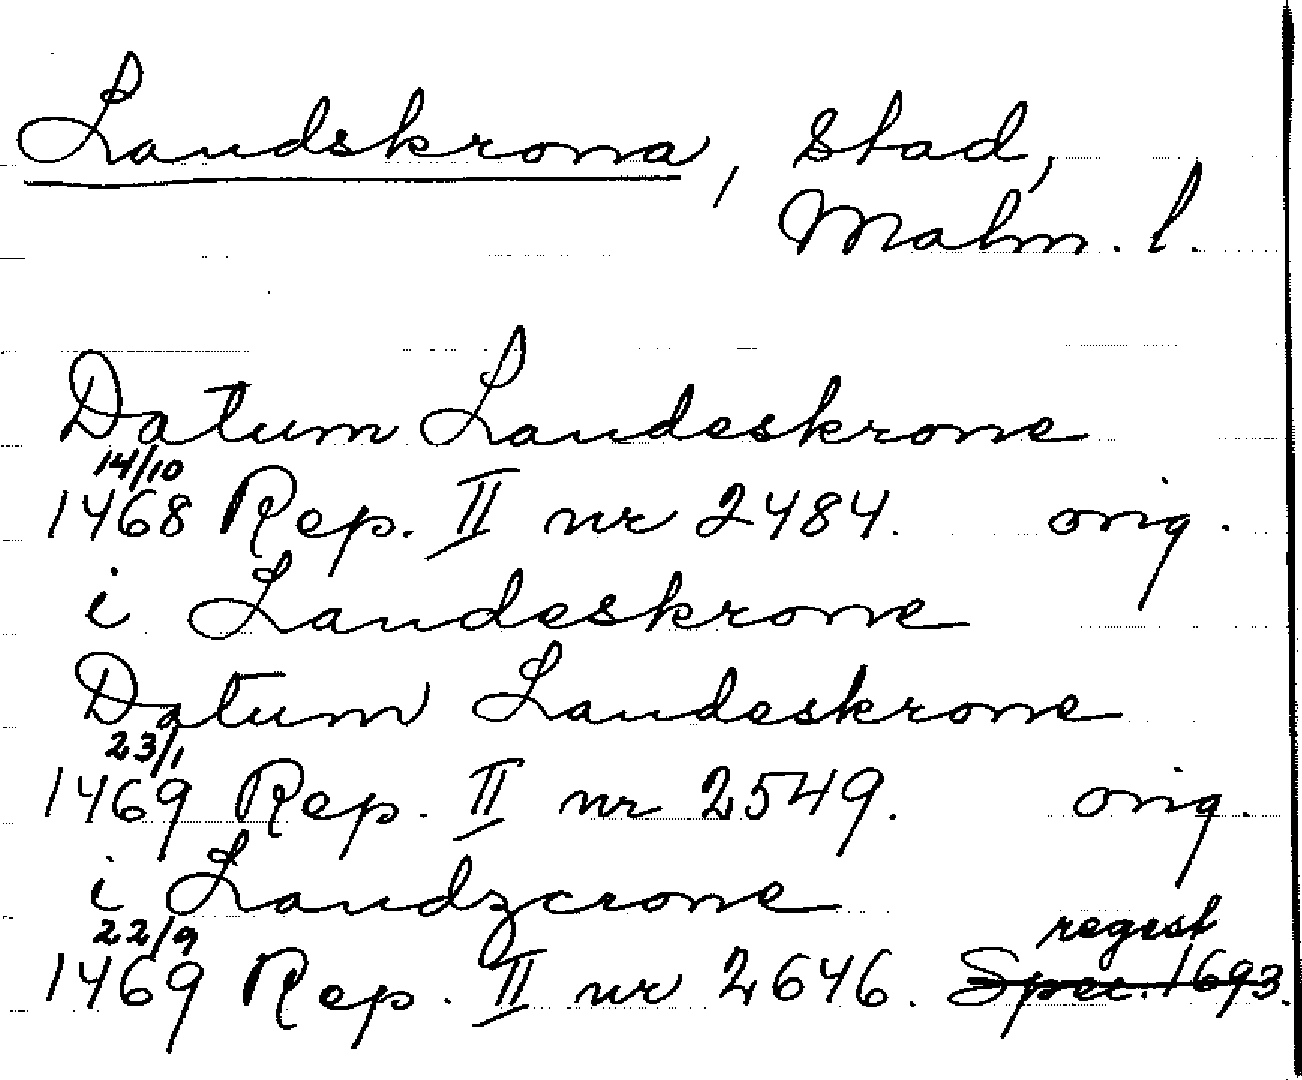 Landskrona, stad,
Malm. l.
Datum Landeskrone
14/10
1468 Rep. II nr 2484. orig.
i Landeskrone
Datum Landeskrone
23/1
1469 Rep. II nr 2549. orig.
i Landzcrone
22/9 regest
1469 Rep. II nr 2646. Spec. 1693.